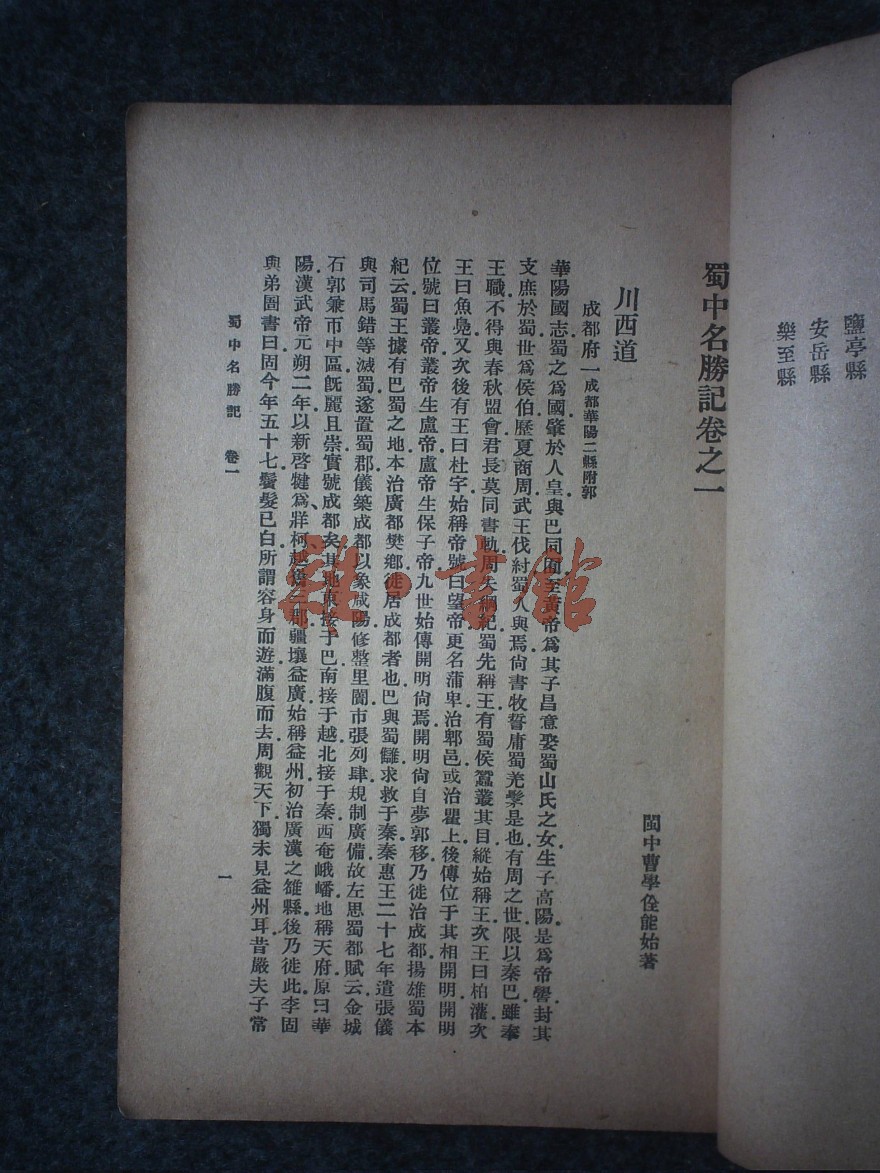 鹽亭縣
安岳縣
樂至縣
蜀中名勝記卷之一
閩中曹學佺能始著
川西道
成都府一成都華陽二縣附郭
華陽國志蜀之爲國肇於人皇與巴同囿至黃帝爲其子昌意娶蜀山氏之女生子高陽是爲帝嚳封其
支庶於蜀世爲侯伯歷夏商周武王伐紂蜀人與焉尙書牧誓庸蜀羌髳是也有周之世限以秦巴雖奉
王職不得與春秋盟會君長莫同書軌周失綱紀蜀先稱王有蜀侯蠶叢其目縱始稱王次王曰柏灌次
王曰魚鳧又次後有王曰杜宇始稱帝號曰望帝更名蒲卑治郫邑或治瞿上後傳位于其相開明開明
位號曰叢帝叢帝生盧帝盧帝生保子帝九世始傳開明尙焉開明尙自夢郭移乃徙治成都揚雄蜀本
紀云蜀王據有巴蜀之地本治廣都樊鄉徙居成都者也巴與蜀讎求救于秦秦惠王二十七年遣張儀
與司馬錯等滅蜀遂置蜀郡儀築成都以象咸陽修整里闠市張列肆規制廣備故左思蜀都賦云金城
石郭兼帀中區旣麗且崇實號成都矣其地東接于巴南接于越北接于秦西奄峨嶓地稱天府原曰華
陽漢武帝元朔二年以新啓犍爲牂柯越巂三郡疆壤益廣始稱益州初治廣漢之雒縣後乃徙此李固
與弟圄書曰固今年五十七鬢髮已白所謂容身而遊滿腹而去周觀天下獨未見益州耳昔嚴夫子常
蜀中名勝記 卷一
一
雜·書館